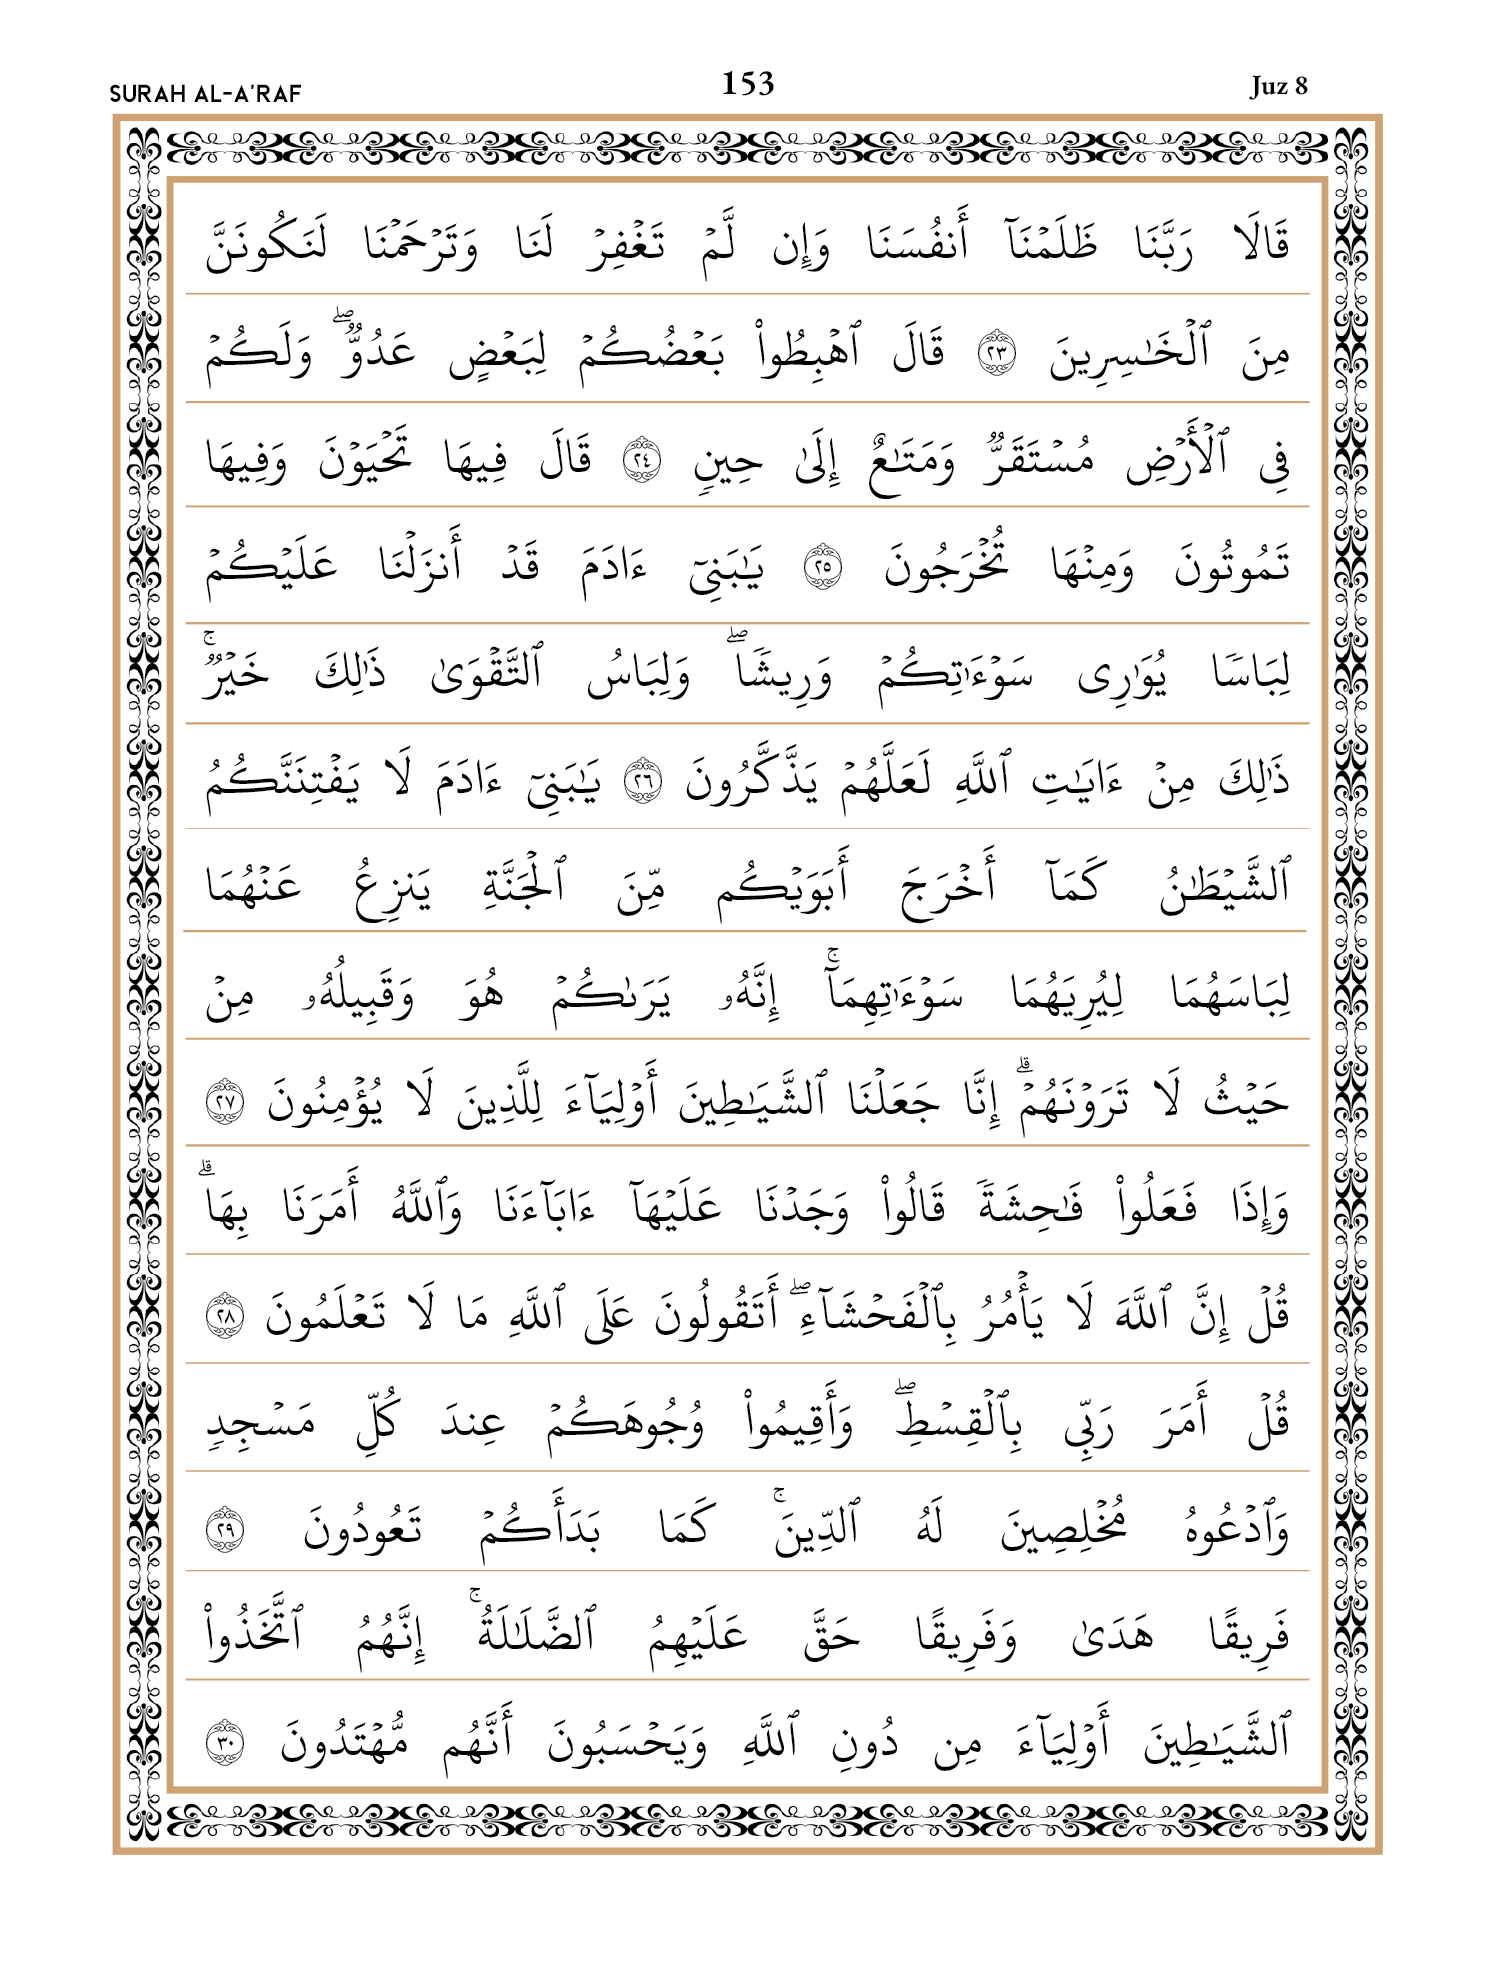 SURAH AL-A'RAF 153 Juz 8
قَالَا رَبَّنَا ظَلَمْنَآ أَنفُسَنَا وَإِن لَّمْ تَغْفِرْ لَنَا وَتَرْحَمْنَا لَنَكُونَنَّ
مِنَ ٱلْخَـٰسِرِينَ ٢٣ قَالَ ٱهْبِطُوا۟ بَعْضُكُمْ لِبَعْضٍ عَدُوٌّ ۖ وَلَكُمْ
فِى ٱلْأَرْضِ مُسْتَقَرٌّ وَمَتَـٰعٌ إِلَىٰ حِينٍ ٢٤ قَالَ فِيهَا تَحْيَوْنَ وَفِيهَا
تَمُوتُونَ وَمِنْهَا تُخْرَجُونَ ٢٥ يَـٰبَنِىٓ ءَادَمَ قَدْ أَنزَلْنَا عَلَيْكُمْ
لِبَاسًا يُوَٰرِى سَوْءَٰتِكُمْ وَرِيشًا ۖ وَلِبَاسُ ٱلتَّقْوَىٰ ذَٰلِكَ خَيْرٌ ۚ
ذَٰلِكَ مِنْ ءَايَـٰتِ ٱللَّهِ لَعَلَّهُمْ يَذَّكَّرُونَ ٢٦ يَـٰبَنِىٓ ءَادَمَ لَا يَفْتِنَنَّكُمُ
ٱلشَّيْطَـٰنُ كَمَآ أَخْرَجَ أَبَوَيْكُم مِّنَ ٱلْجَنَّةِ يَنزِعُ عَنْهُمَا
لِبَاسَهُمَا لِيُرِيَهُمَا سَوْءَٰتِهِمَآ ۚ إِنَّهُۥ يَرَىٰكُمْ هُوَ وَقَبِيلُهُۥ مِنْ
حَيْثُ لَا تَرَوْنَهُمْ ۗ إِنَّا جَعَلْنَا ٱلشَّيَـٰطِينَ أَوْلِيَآءَ لِلَّذِينَ لَا يُؤْمِنُونَ ٢٧
وَإِذَا فَعَلُوا۟ فَـٰحِشَةً قَالُوا۟ وَجَدْنَا عَلَيْهَآ ءَابَآءَنَا وَٱللَّهُ أَمَرَنَا بِهَا ۗ
قُلْ إِنَّ ٱللَّهَ لَا يَأْمُرُ بِٱلْفَحْشَآءِ ۖ أَتَقُولُونَ عَلَى ٱللَّهِ مَا لَا تَعْلَمُونَ ٢٨
قُلْ أَمَرَ رَبِّى بِٱلْقِسْطِ ۖ وَأَقِيمُوا۟ وُجُوهَكُمْ عِندَ كُلِّ مَسْجِدٍ
وَٱدْعُوهُ مُخْلِصِينَ لَهُ ٱلدِّينَ ۚ كَمَا بَدَأَكُمْ تَعُودُونَ ٢٩
فَرِيقًا هَدَىٰ وَفَرِيقًا حَقَّ عَلَيْهِمُ ٱلضَّلَـٰلَةُ ۚ إِنَّهُمُ ٱتَّخَذُوا۟
ٱلشَّيَـٰطِينَ أَوْلِيَآءَ مِن دُونِ ٱللَّهِ وَيَحْسَبُونَ أَنَّهُم مُّهْتَدُونَ ٣٠